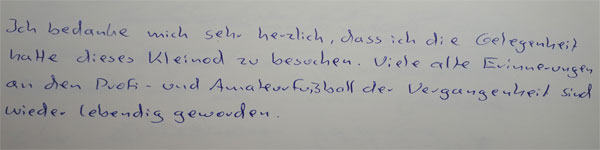 Ich bedanke mich sehr herzlich, dass ich die Gelegenheit
hatte dieses Kleinod zu besuchen. Viele alte Erinnerungen
an den Profi- und Amateurfußball der Vergangenheit sind
wieder lebendig geworden.